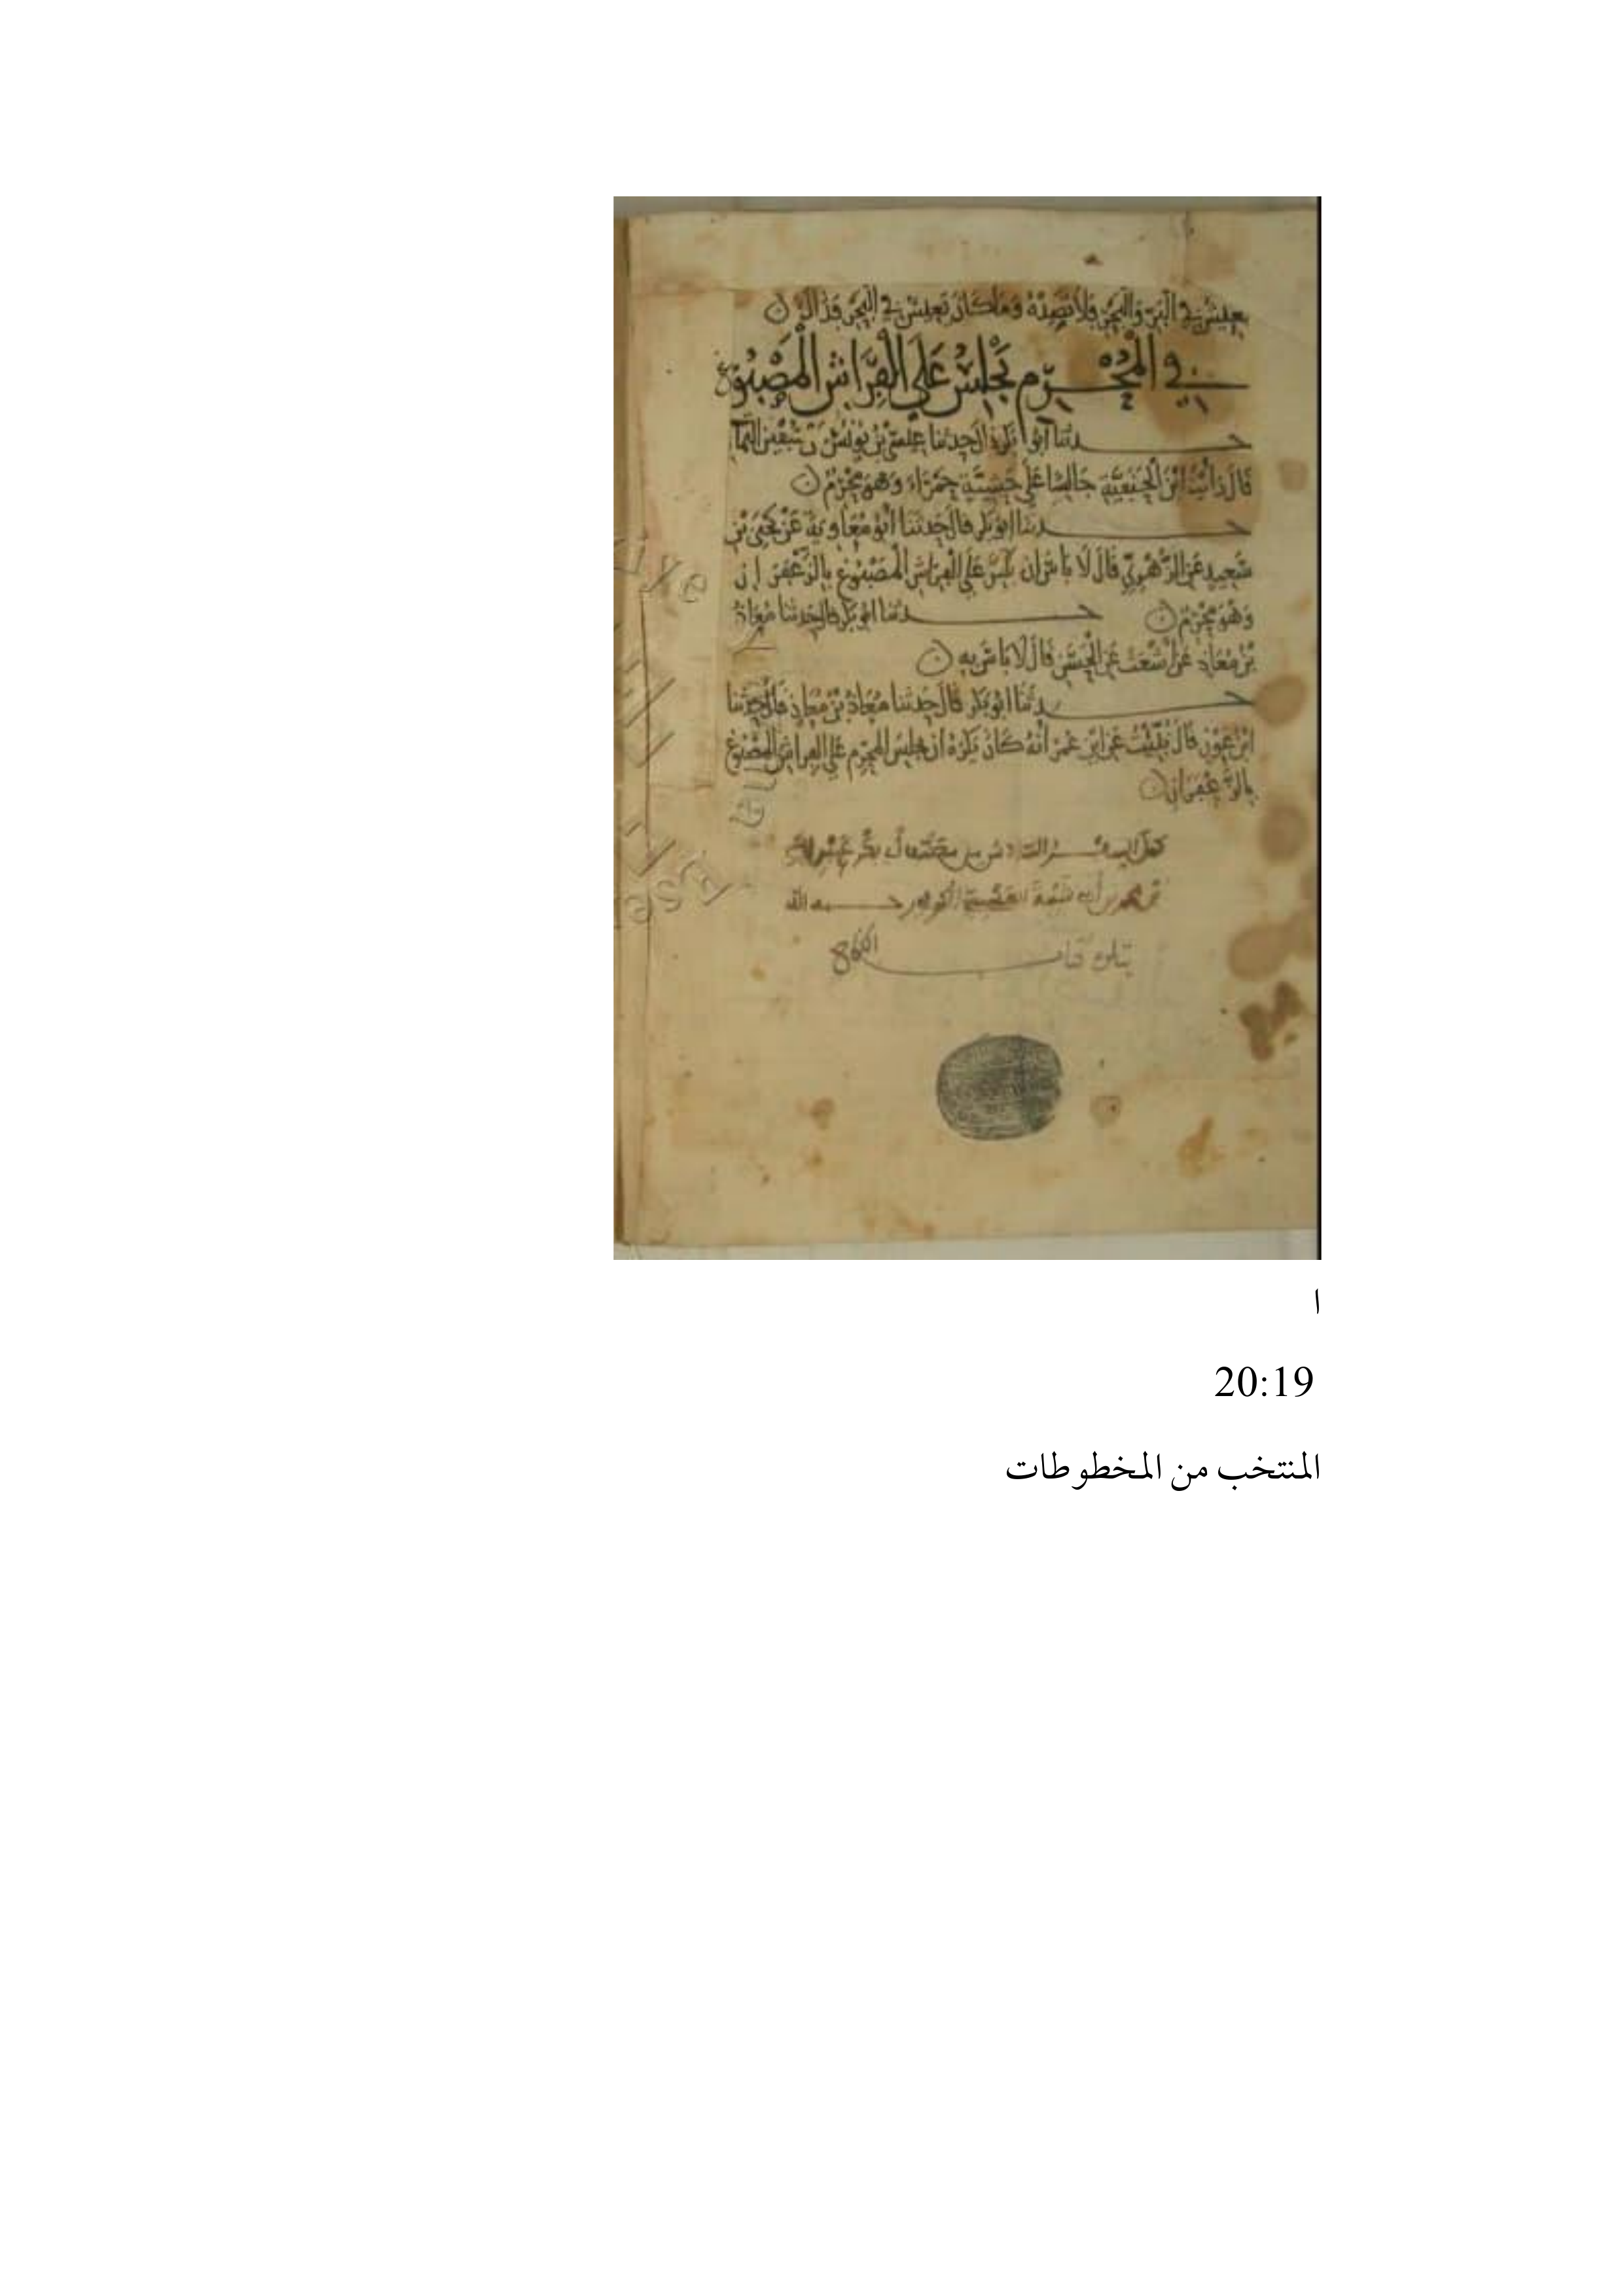 يعيش في البر والبحر فلا تصده وما كان يعيش في البحر فذاك
في المحرم يجلس على الفراش المصبوغ
حدثنا أبو بكر قال حدثنا عيسى بن يونس
قال رأيت ابن الحنفية جالسا على حشية حمراء وهو محرم
حدثنا ابو بكر قال حدثنا أبو معاوية عن يحيى بن
سعيد عن الزهري قال لا بأس ان على الفراش المصبوغ بالزعفران
وهو محرم حدثنا ابو بكر قال حدثنا معاذ
بن معاذ عن أشعث عن الحسن قال لا بأس به
حدثنا ابو بكر قال حدثنا معاذ بن معاذ قال حدثنا
ابن عون قال نبئت عن ابن عمر أنه كان يكره أن يجلس المحرم على الفراش المصبوغ
بالزعفران
كمل السفر من
بن محمد بن أبي شيبة رحمه الله
يتلوه كتاب
ا
20:19
المنتخب من المخطوطات